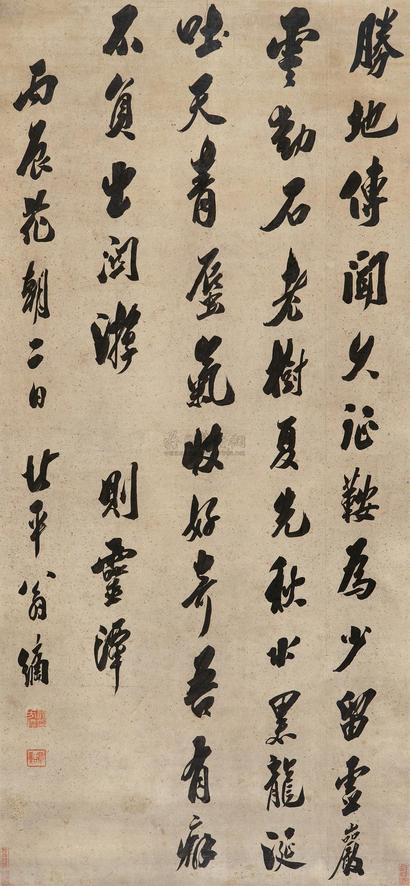 勝地傳聞久征鞍為少留靈巖
雲動石老樹夏先秋水黑龍涎
吐天青蜃氣收好奇吾有癖
不負出關游 則靈潭
丙辰花朝二日北平翁